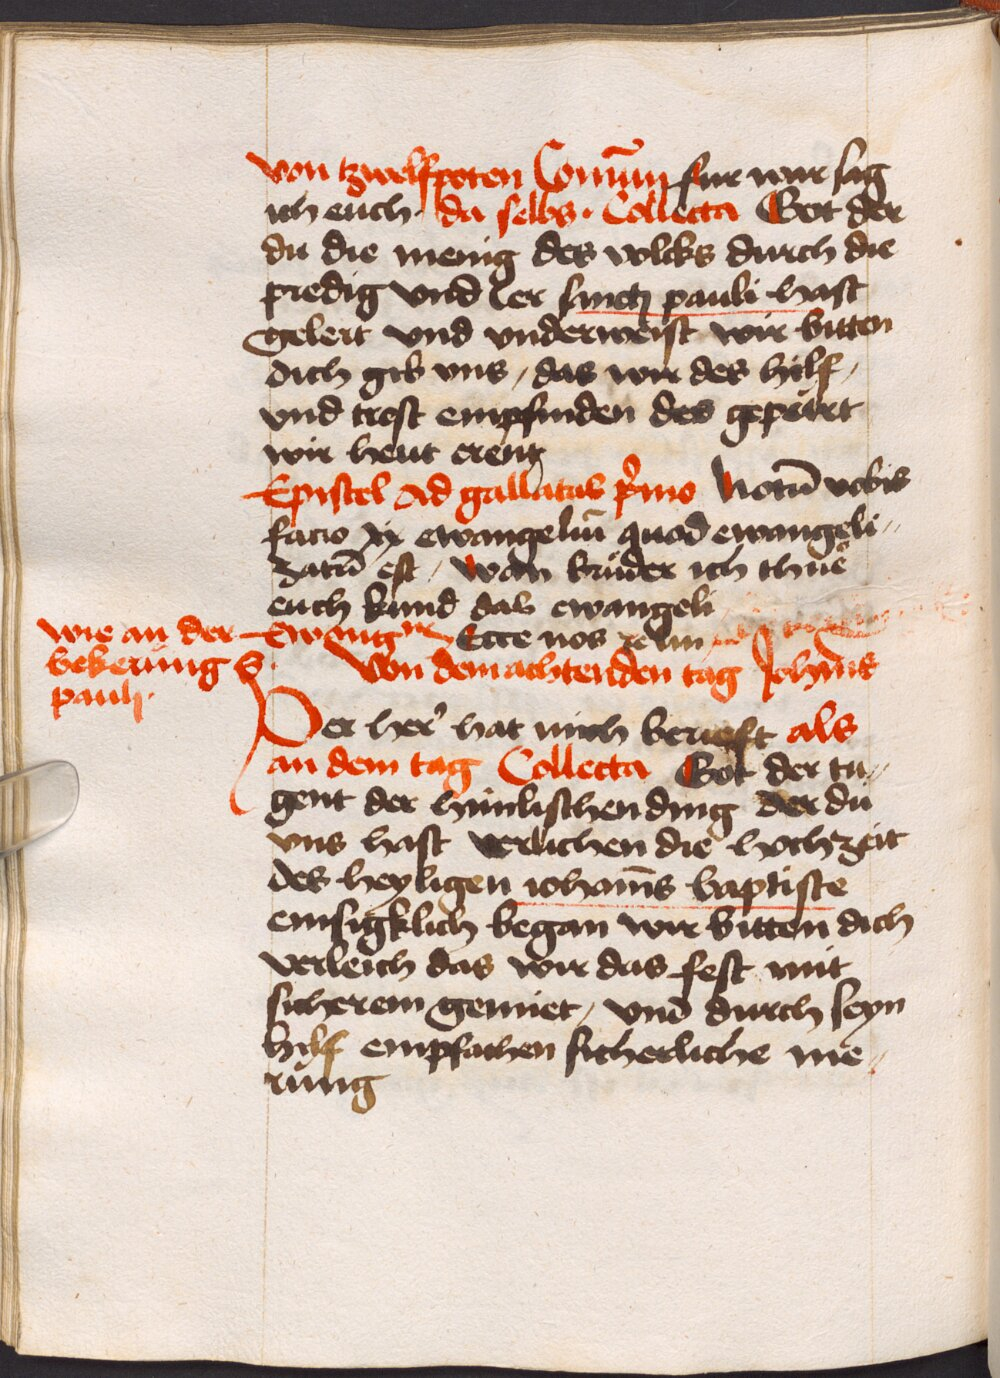 von tzwelfpoten Comūn fur war sag
ich euch · da selbs · Collecta Got der
du die menig des volcks durch die
predig vnd ler sanctj pauli hast
gelert vnd vnderweist wir bitten
dich gib vns / das wir des hilf /
vnd trost empfinden des gepürt
wir heut erent
Epistel Ad gallatas pͥmo Notū vobis
facio ewangeliū quod ewangeli //
zatū est / Wan brüder ich thüe
euch kund das ewangeli
wie an der
bekerung S
paulj ·
Ewang Ecce nos
Von dem achtenden tag Joha͞nis
Der her' hat mich beruoft als
an dem tag Collecta Got der tu //
gent der himlischen ding der du
vns hast verlichen die hochzeit
des heyligen ioha͞ns baptiste
emsigklich began wir bitten dich
verleich das wir das fest mit
sicherem gemiet / vnd durch seyn
hilf empfachen sicherliche me //
rung